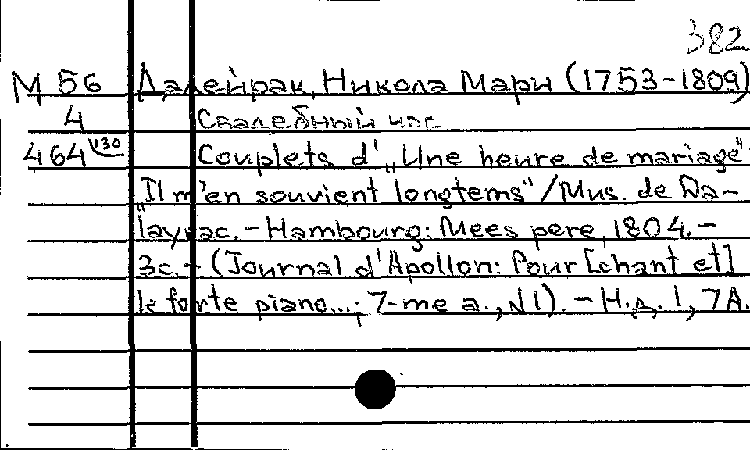 382
М 56 Далейрак, Никола Мари (1753-1809)
4 Свадебный час
464 V30 Couplets d'„Une heure de mariage":
„Il m'en souvient longtems"/Mus. de Da-
layrac. - Hambourg: Mees pere, 1804. -
3с. - (Journal d'Apollon: Pour [chant et]
le forte piano...; 7-me a., N1). - Н.д. 1, 7А.